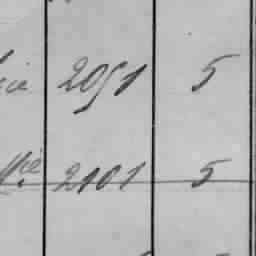 cie 2051 5
cie 2101 5